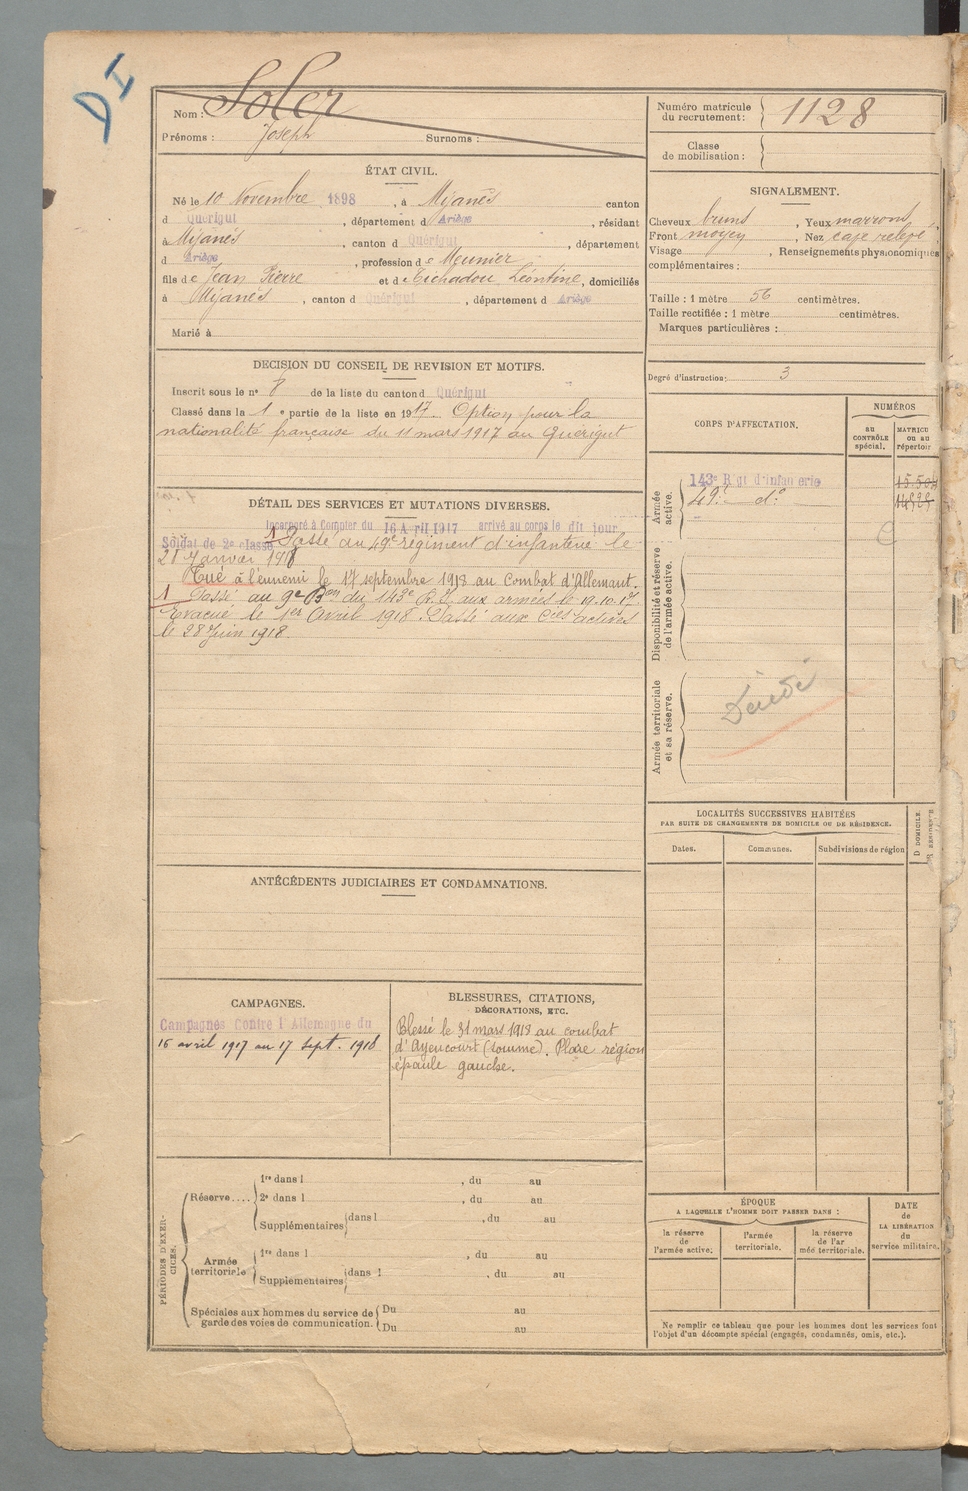 D I
Nom : Soler
Prénoms : Joseph Surnoms :
Numéro matricule
du recrutement : 1128
Classe
de mobilisation :
ÉTAT CIVIL.
Né le 10 Novembre 1898, à Mijanès canton
d Quérigut, département d Ariège, résidant
à Mijanès, canton d Quérigut, département
d Ariège, profession de Meunier
fils de Jean Pierre et de Léontine, domiciliés
à Mijanès, canton d Quérigut, département d Ariège
Marié à
SIGNALEMENT.
Cheveux bruns, Yeux marrons,
Front moyen, Nez relevé,
Visage, Renseignements physionomiques
complémentaires :
Taille : 1 mètre 56 centimètres.
Taille rectifiée : 1 mètre centimètres.
Marques particulières :
Degré d'instruction : 3
DECISION DU CONSEIL DE REVISION ET MOTIFS.
Inscrit sous le n° 8 de la liste du canton d Quérigut
Classé dans la 1e partie de la liste en 1917. Option pour la
nationalité française du 11 mars 1917 au Quérigut
DÉTAIL DES SERVICES ET MUTATIONS DIVERSES.
Incorporé à Compter du 16 Avril 1917 arrivé au corps le dit jour
Soldat de 2e classe 1 Passé au 49e régiment d'infanterie le
28 Janvier 1918
Tué à l'ennemi le 17 septembre 1918 au Combat d'Allemant.
1 Passé au 9e Bon du 143e R.I. aux armées le 19.10.17.
Evacué le 1er Avril 1918. Passé aux Cies actives
le 28 Juin 1918.
CORPS D'AFFECTATION.
NUMÉROS
au
CONTRÔLE
spécial.
MATRICU
ou au
répertoir
Armée
active.
143e Rgt d'infanterie
49e do
Disponibilité et réserve
de l'armée active.
Armée territoriale
et sa réserve.
Décédé
LOCALITÉS SUCCESSIVES HABITÉES
PAR SUITE DE CHANGEMENTS DE DOMICILE OU DE RÉSIDENCE.
Dates. Communes. Subdivisions de région
D DOMICILE
ANTÉCÉDENTS JUDICIAIRES ET CONDAMNATIONS.
CAMPAGNES.
Campagnes Contre l'Allemagne du
16 avril 1917 au 17 sept. 1918
BLESSURES, CITATIONS,
DÉCORATIONS, ETC.
Blessé le 31 mars 1918 au combat
d'Ayencourt (Somme). Plaie région
épaule gauche.
PÉRIODES D'EXER-
CICES.
Réserve....
1re dans l, du au
2e dans l, du au
Supplémentaires dans l, du au
Armée
territoriale
1re dans l, du au
Supplémentaires dans l, du au
Spéciales aux hommes du service de
garde des voies de communication.
Du au
Du au
ÉPOQUE
A LAQUELLE L'HOMME DOIT PASSER DANS :
la réserve
de
l'armée active.
l'armée
territoriale.
la réserve
de l'ar
mée territoriale.
DATE
de
LA LIBÉRATION
du
service militaire.
Ne remplir ce tableau que pour les hommes dont les services font
l'objet d'un décompte spécial (engagés, condamnés, omis, etc.).